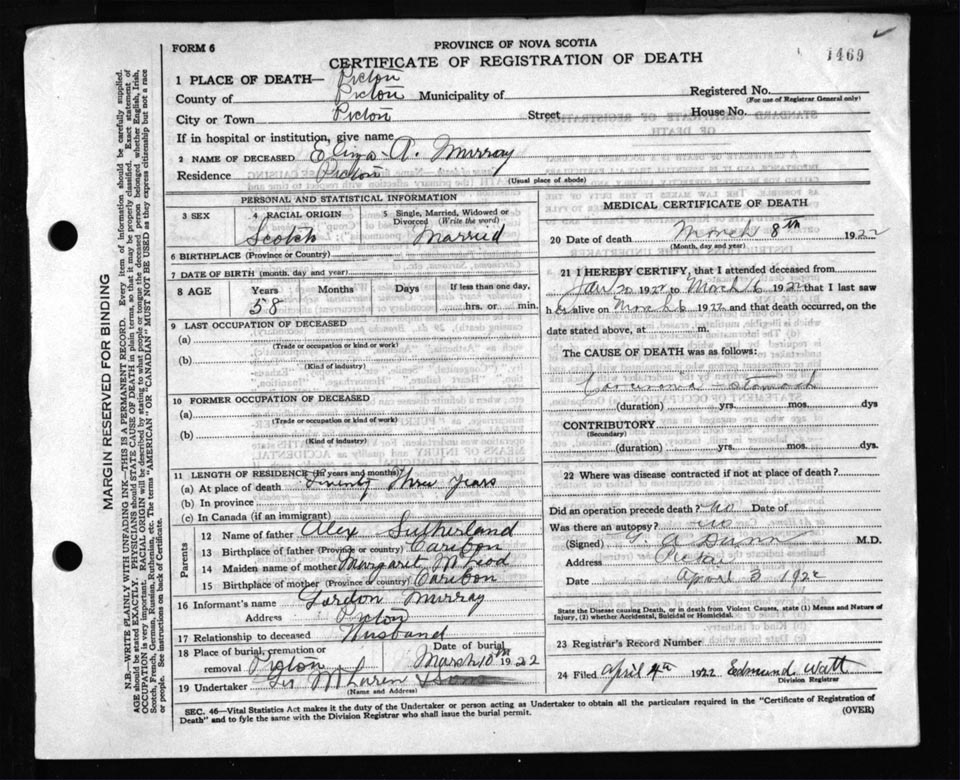 FORM 6
PROVINCE OF NOVA SCOTIA
CERTIFICATE OF REGISTRATION OF DEATH
1469
1 PLACE OF DEATH— Pictou
County of Pictou Municipality of
Registered No.
(For use of Registrar General only)
City or Town Pictou Street House No.
If in hospital or institution, give name
2 NAME OF DECEASED A. Murray
Residence Pictou
(Usual place of abode)
PERSONAL AND STATISTICAL INFORMATION
3 SEX 4 RACIAL ORIGIN 5 Single, Married, Widowed or Divorced (Write the word)
Scotch Married
6 BIRTHPLACE (Province or Country)
7 DATE OF BIRTH (month, day and year)
8 AGE Years Months Days If less than one day,
58 hrs. or min.
9 LAST OCCUPATION OF DECEASED
(a)
(Trade or occupation or kind or work)
(b)
(Kind of industry)
10 FORMER OCCUPATION OF DECEASED
(a)
(Trade or occupation or kind of work)
(b)
(Kind of industry)
11 LENGTH OF RESIDENCE (in years and months)
(a) At place of death Twenty Three Years
(b) In province
(c) In Canada (if an immigrant)
Parents
12 Name of father Alex Sutherland
13 Birthplace of father (Province or country) Caribou
14 Maiden name of mother Margaret McLeod
15 Birthplace of mother (Province or country) Caribou
16 Informant's name Gordon Murray
Address Pictou
17 Relationship to deceased Husband
18 Place of burial, cremation or removal Pictou
Date of burial March 10th 1922
19 Undertaker McLaren & Sons
(Name and Address)
MEDICAL CERTIFICATE OF DEATH
20 Date of death March 8th 1922
(Month, day and year)
21 I HEREBY CERTIFY, that I attended deceased from
Jan 20 1922 to March 6 1922 that I last saw
her alive on March 6 1922 and that death occurred, on the
date stated above, at m.
The CAUSE OF DEATH was as follows:
Carcinoma - stomach
(duration) yrs. mos. dys
CONTRIBUTORY
(Secondary)
(duration) yrs. mos. dys.
22 Where was disease contracted if not at place of death?
Did an operation precede death? no Date of
Was there an autopsy? no
(Signed) G. A. Dunn M.D.
Address Pictou
Date April 3 1922
State the Disease causing Death, or in death from Violent Causes, state (1) Means and Nature of
Injury, (2) whether Accidental, Suicidal or Homicidal.
23 Registrar's Record Number
24 Filed April 4th 1922 Edmund Watt
Division Registrar
SEC. 46—Vital Statistics Act makes it the duty of the Undertaker or person acting as Undertaker to obtain all the particulars required in the "Certificate of Registration of
Death" and to fyle the same with the Division Registrar who shall issue the burial permit.
(OVER)
MARGIN RESERVED FOR BINDING
N.B.—WRITE PLAINLY WITH UNFADING INK—THIS IS A PERMANENT RECORD. Every item of information should be carefully supplied.
AGE should be stated EXACTLY. PHYSICIANS should STATE CAUSE OF DEATH in plain terms, so that it may be properly classified. Exact statement of
OCCUPATION is very important. RACIAL ORIGIN will be described by stating to what people or tongue the deceased person belonged whether English, Irish,
Scotch, French, German, Russian, Ruthenian, etc. The terms "AMERICAN" OR "CANADIAN" MUST NOT BE USED as they express citizenship but not a race
or people. See instructions on back of Certificate.